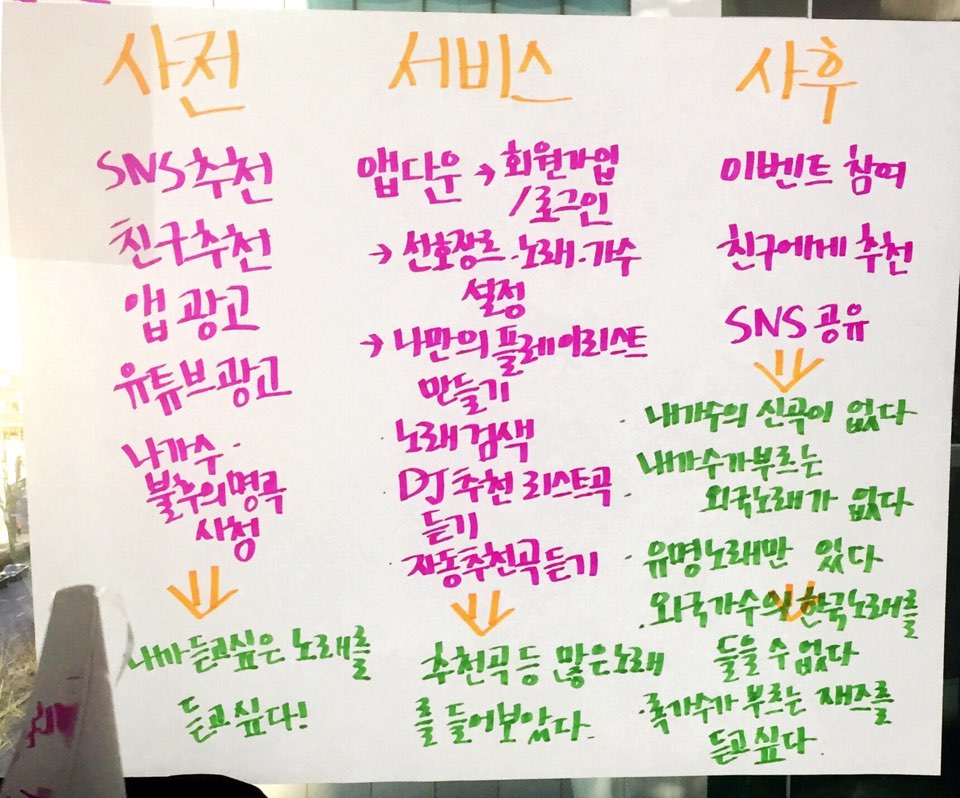 사전
SNS 추천
친구추천
앱 광고
유튜브광고
나가수·
불후의명곡
시청
내가듣고싶은 노래를
듣고싶다!
서비스
앱다운 → 회원가입
/로그인
→ 선호장르·노래·가수
설정
→ 나만의 플레이리스트
만들기
· 노래검색
· DJ추천 리스트곡
듣기
· 자동추천곡듣기
추천곡 등 많은노래
를 들어보았다.
사후
이벤트 참여
친구에게 추천
SNS 공유
· 내가수의 신곡이 없다
· 내가수가부르는
외국노래가 없다
· 유명노래만 있다
· 외국가수의 한국노래를
들을 수 없다
· 록가수가 부르는 재즈를
듣고싶다.